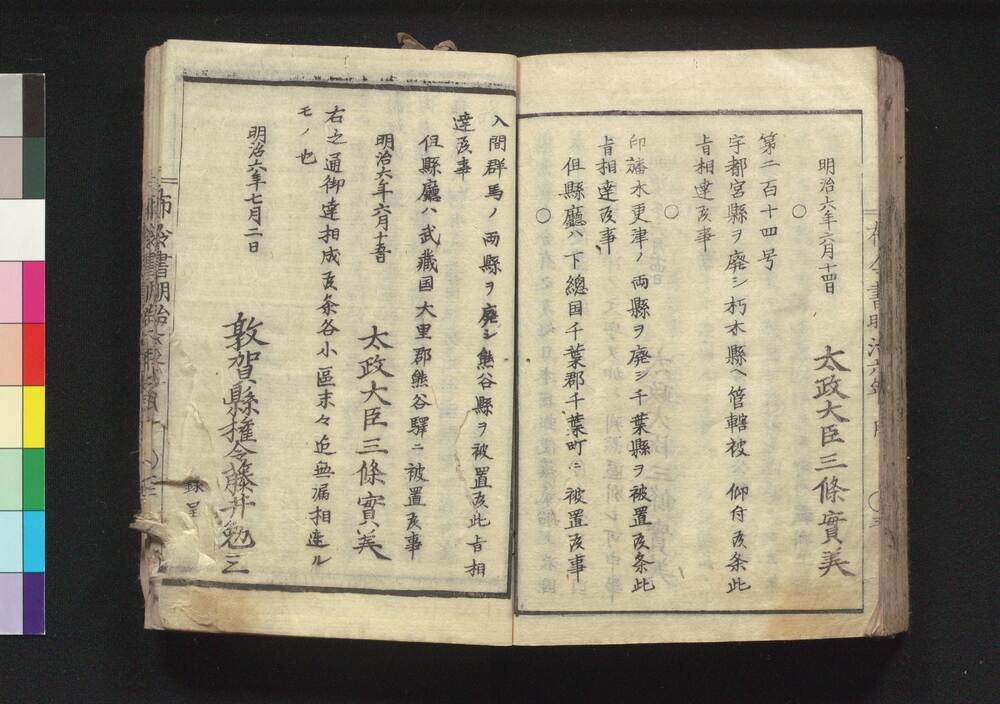 明治六年六月十四日
太政大臣三條實美
○
第二百十四号
宇都宮縣ヲ廃シ朽木縣ヘ管轄被 仰付候条此
旨相達候事
○
印旛木更津ノ両縣ヲ廃シ千葉縣ヲ被置候条此
旨相達候事
但縣廳ハ下總国千葉郡千葉町ニ被置候事
○
入間群馬ノ両縣ヲ廃シ熊谷縣ヲ被置候此旨相
達候事
但縣廳ハ武藏国大里郡熊谷驛ニ被置候事
明治六年六月十五日
太政大臣三條實美
右之通御達相成候条各小區末々迄無漏相達ル
モノ也
明治六年七月二日
敦賀縣權令藤井勉三